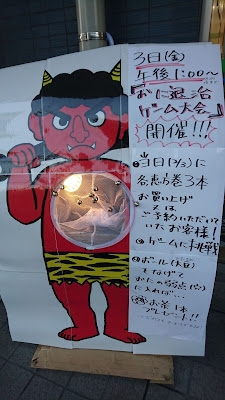 3日(金)
午後1:00〜
『おに退治
ゲーム大会』
開催!!!
当日(2/3)に
各恵方巻3本
お買い上げ
又は
ご予約いただいて
いたお客様!
ゲームに挑戦
ボール(大豆)
をなげて
おにの弱点(?)
に入れば…
お茶1本
プレゼント!!